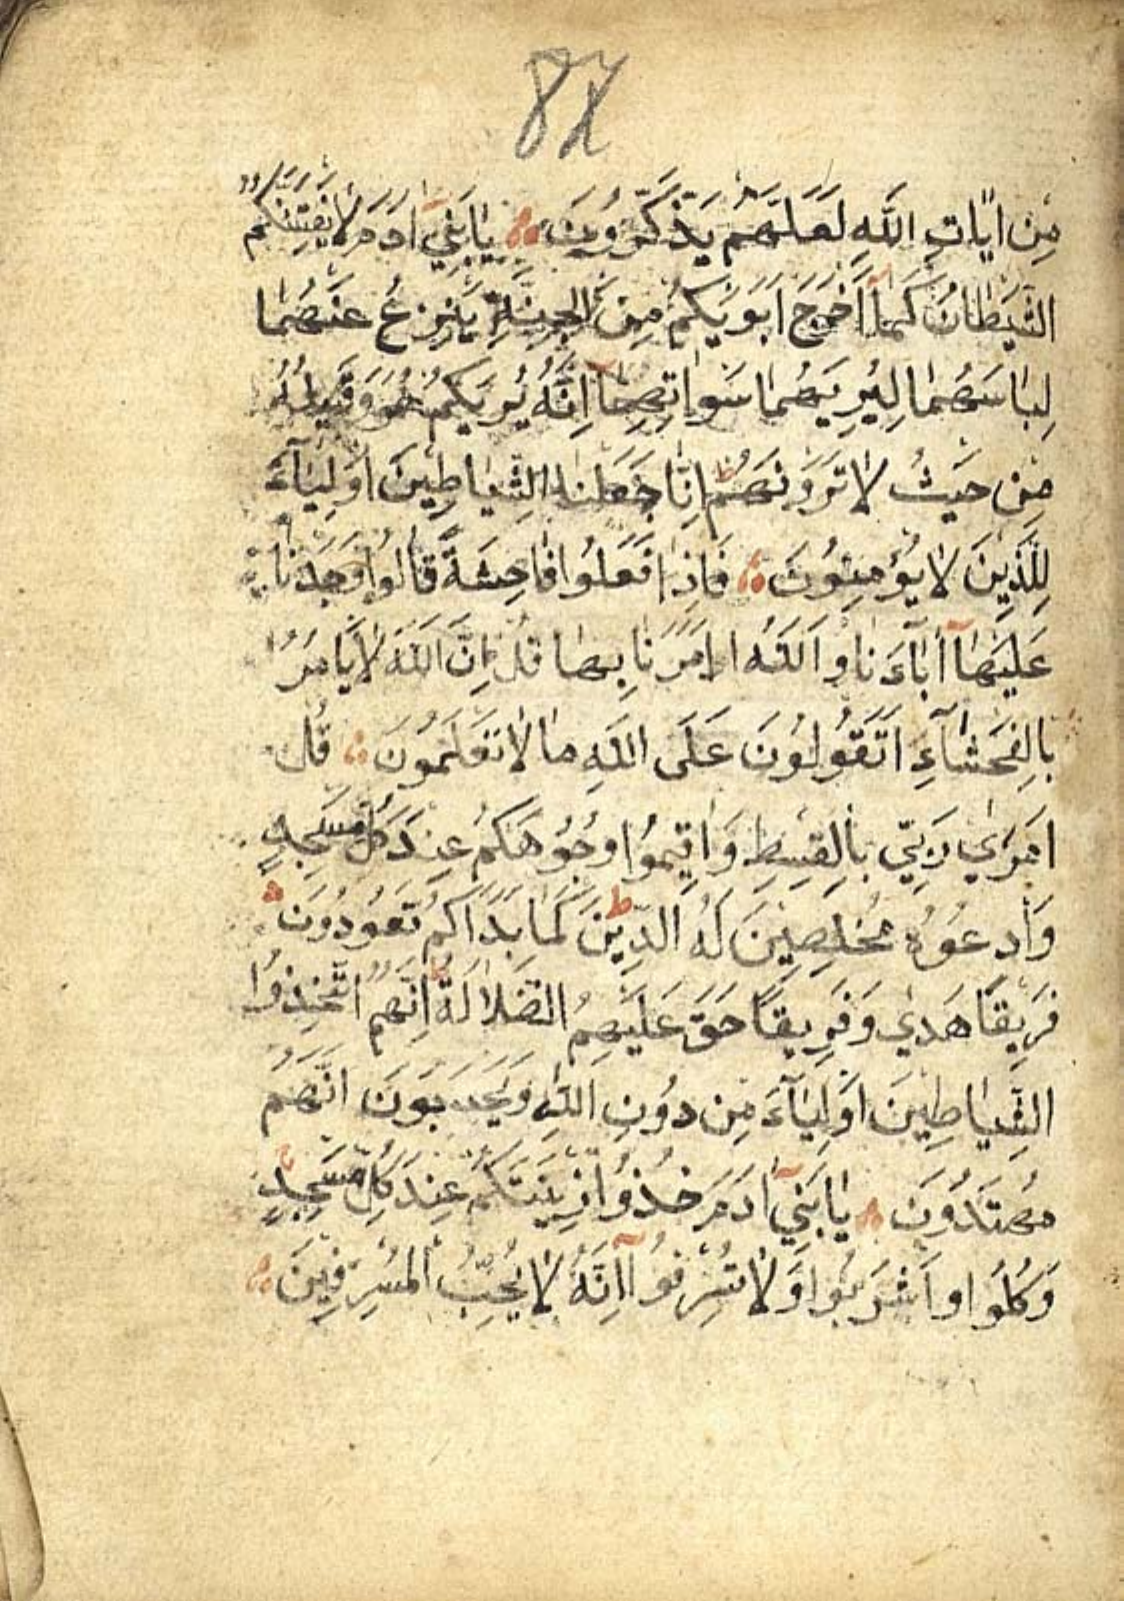 82
مِنْ اٰيَاتِ اللّٰهِ لَعَلَّهُمْ يَذَّكَّرُونَ يَابَنِيٓ اٰدَمَ لَا يَفْتِنَنَّكُمُ
الشَّيْطَانُ كَمَآ اَخْرَجَ اَبَوَيْكُمْ مِنَ الْجَنَّةِ يَنْزِعُ عَنْهُمَا
لِبَاسَهُمَا لِيُرِيَهُمَا سَوْاٰتِهِمَا اِنَّهُ يُرٰيكُمْ هُوَ وَقَبِيلُهُ
مِنْ حَيْثُ لَا تَرَوْنَهُمْ اِنَّا جَعَلْنَا الشَّيَاطِينَ اَوْلِيَآءَ
لِلَّذِينَ لَا يُؤْمِنُونَ فَاِذَا فَعَلُوا فَاحِشَةً قَالُوا وَجَدْنَا
عَلَيْهَآ اٰبَآءَنَا وَاللّٰهُ اَمَرَنَا بِهَا قُلْ اِنَّ اللّٰهَ لَا يَامُرُ
بِالْفَحْشَآءِ اَتَقُولُونَ عَلَى اللّٰهِ مَا لَا تَعْلَمُونَ قُلْ
اَمَرَ رَبِّي بِالْقِسْطِ وَاَقِيمُوا وُجُوهَكُمْ عِنْدَ كُلِّ مَسْجِدٍ
وَادْعُوهُ مُخْلِصِينَ لَهُ الدِّينَ كَمَا بَدَاَكُمْ تَعُودُونَ
فَرِيقًا هَدٰي وَفَرِيقًا حَقَّ عَلَيْهِمُ الضَّلَالَةُ اِنَّهُمُ اتَّخَذُوا
الشَّيَاطِينَ اَوْلِيَآءَ مِنْ دُونِ اللّٰهِ وَيَحْسَبُونَ اَنَّهُمْ
مُهْتَدُونَ يَابَنِيٓ اٰدَمَ خُذُوا زِينَتَكُمْ عِنْدَ كُلِّ مَسْجِدٍ
وَكُلُوا وَاشْرَبُوا وَلَا تُسْرِفُوٓا اِنَّهُ لَا يُحِبُّ الْمُسْرِفِينَ